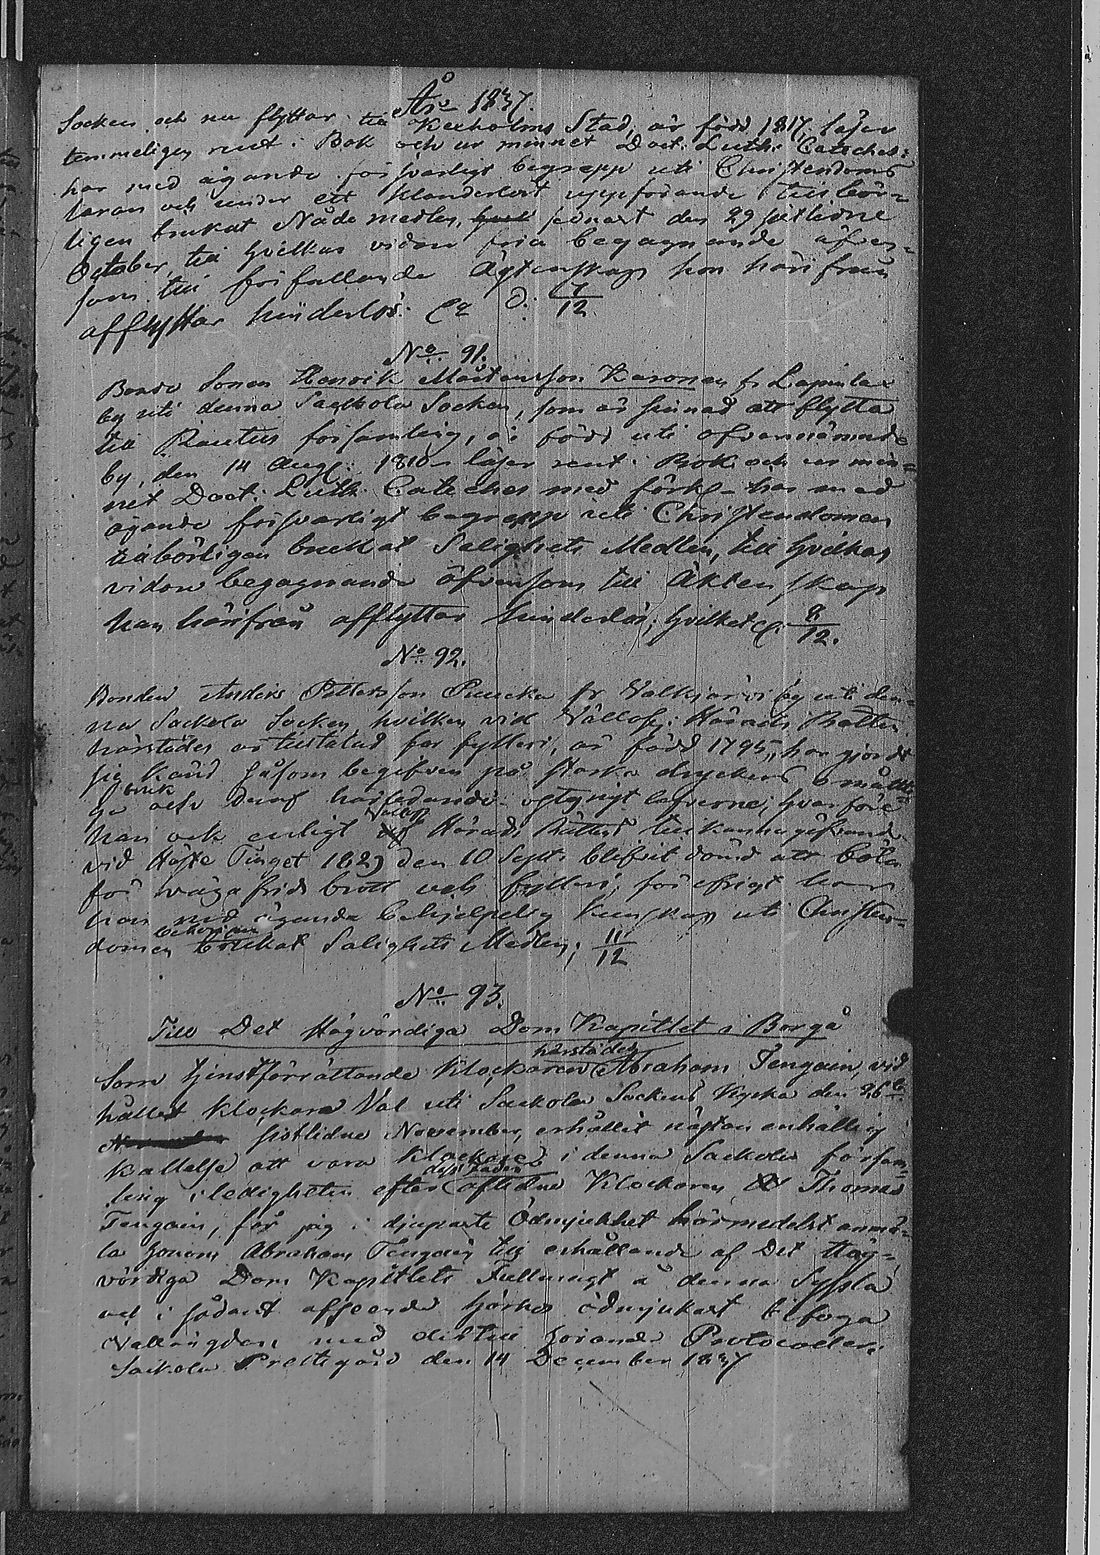 Åro 1837.
Socken och nu flyttar till Kexholms Stad, är född 1817, läser
temmeligen rent i Bok och ur minnet Doct. Luth. Cateches:
har med ägande försvarligt begrepp uti Christendoms
läran och under ett klanderlöst uppförande tillbör-
ligen brukat Nådemedlen, senast den 29 sistlidne
October, till hvilkas vidare fria begagnande äfven-
som till förfallande Ägtenskap hon härifrån
afflyttar hinderlös. 7/12.
No 91.
Bonde Sonen Henrik Mårtensson Karonen fr Lapinlax
by uti denna Sackola Socken, som är sinnad att flytta
till Rautus församling, är född uti ofvannämnde
by, den 14 Aug. 1810 läser rent i Bok och ur min-
net Doct. Luth. Cateches med förkl. har med
ägande försvarligt begrepp uti Christendomen
tillbörligen brukat Salighets Medlen, till hvilkas
vidare begagnande äfvensom till Äktenskap
han härifrån afflyttar hinderlös; hvilket 8/12.
No 92.
Bonden Anders Pettersson Puucka fr Valkjärvi by uti den-
na Sackola Socken, hvilken vid Vällofl. Härads Rätten
härstädes är tilltalad for fylleri, är född 1795, har gjordt
sig känd såsom begifven på starka dryckers omåttli-
ga bruk och deraf härledande lefverne, hvarföre
han ock enligt Vällofl. Härads Rättens tillkännagifvande
vid Höste Tinget 1829 den 10 Sept. blifvit dömd att böta
för vägafrids brott och fylleri; för öfrigt har
han med ägande behjelpelig kunskap uti Christen-
domen brukat Salighets Medlen; 11/12
No 93.
Till Det Högvördiga Dom Kapitlet i Borgå
Som tjenstförrättande Klockaren härstädes Abraham Tengain, vid
hållet Klockare Val uti Sackola Sockens Kyrka den 26te
sistlidne November, erhållit nästan enhällig
kallelse att vara Klockare i denna Sackola försam-
ling i ledigheten efter dess fader aflidne Klockaren Thomas
Tengain, får jag i djupaste Ödmjukhet härmedelst anmä-
la honom Abraham Tengain till erhållande af Det Hög-
vördiga Dom Kapitlets Fullmagt å denna Syssla
och i sådant afseende ödmjukast bifoga
Vallängden med dertill hörande Protocoller.
Sackola Prestegård den 14 December 1837